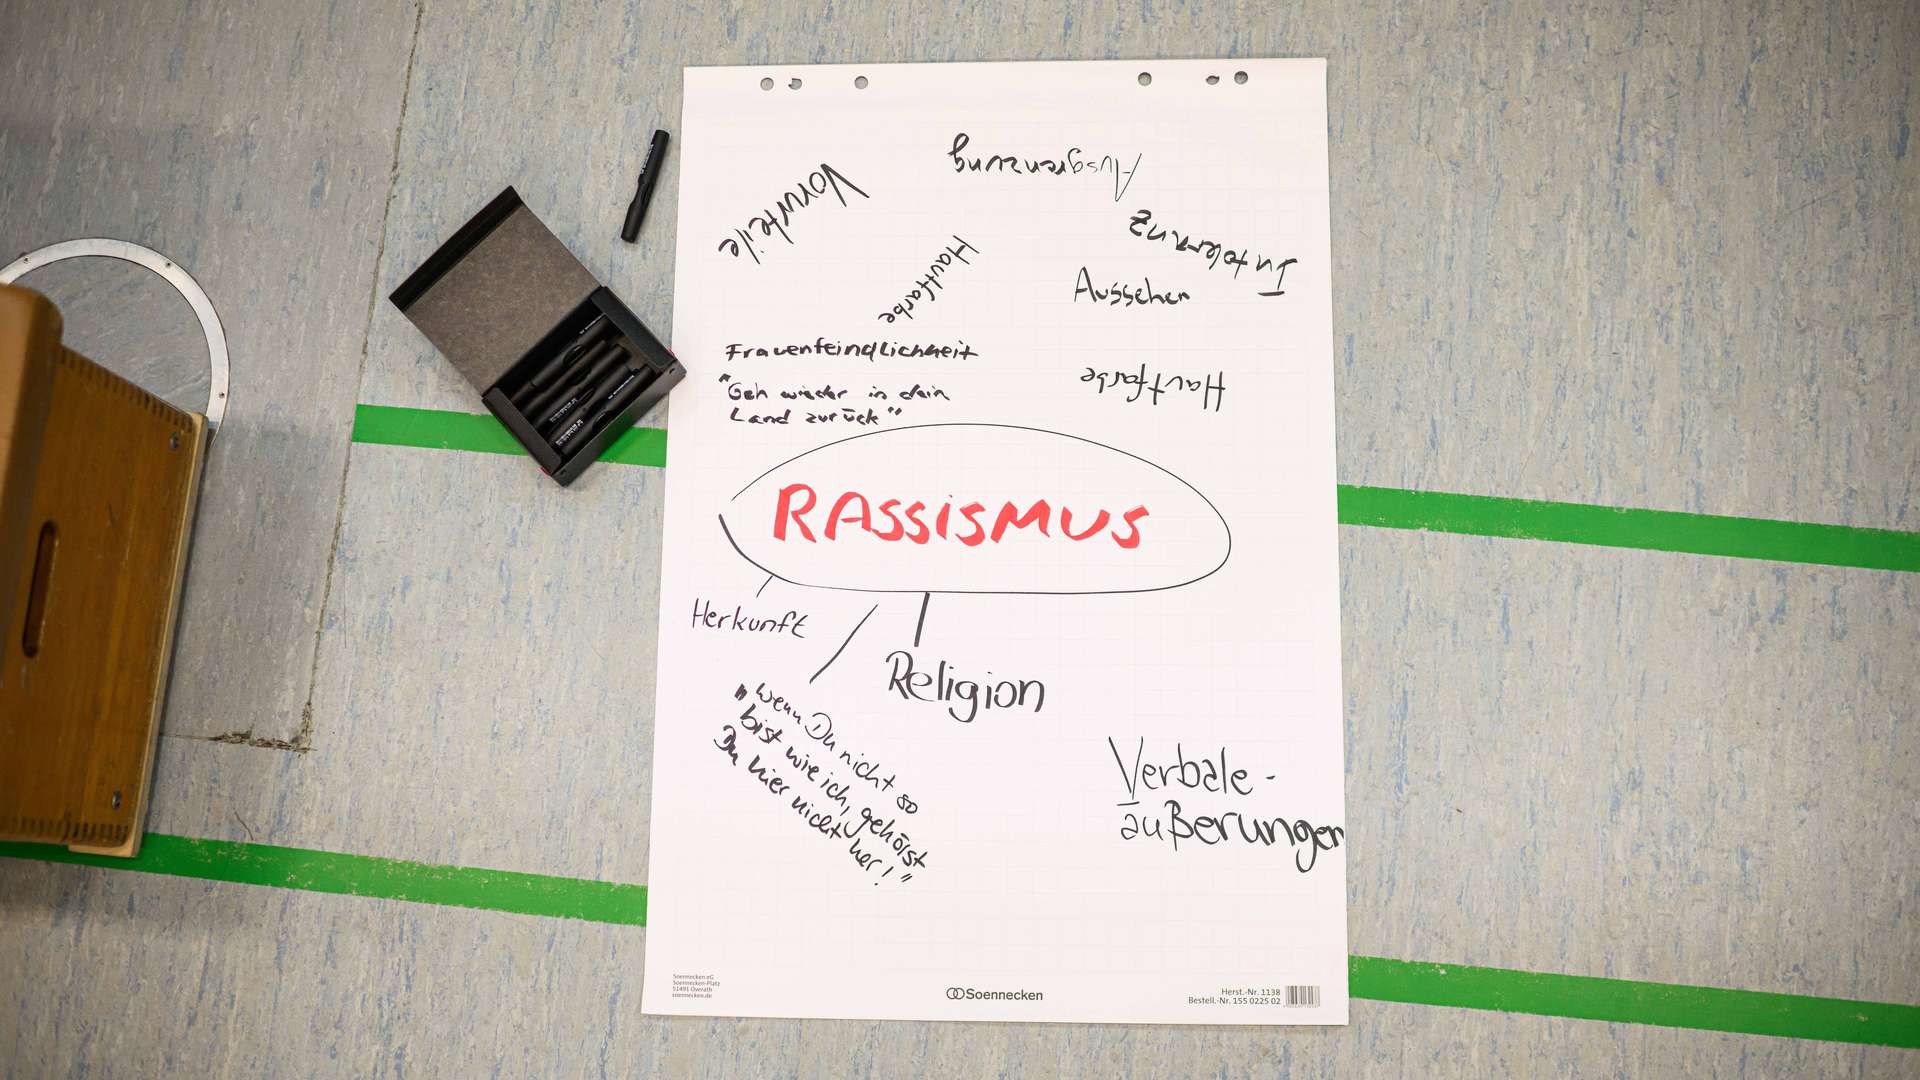 Ausgrenzung
Vorurteile
Intoleranz
Hautfarbe
Aussehen
Frauenfeindlichkeit
Hautfarbe
"Geh wieder in dein
Land zurück"
RASSISMUS
Herkunft
Religion
"wenn Du nicht so
bist wie ich, gehörst
Du hier nicht her!"
Verbale-
äußerungen
Soennecken eG
Soennecken-Platz
51491 Overath
soennecken.de
Soennecken
Herst.-Nr. 1138
Bestell.-Nr. 155 0225 02